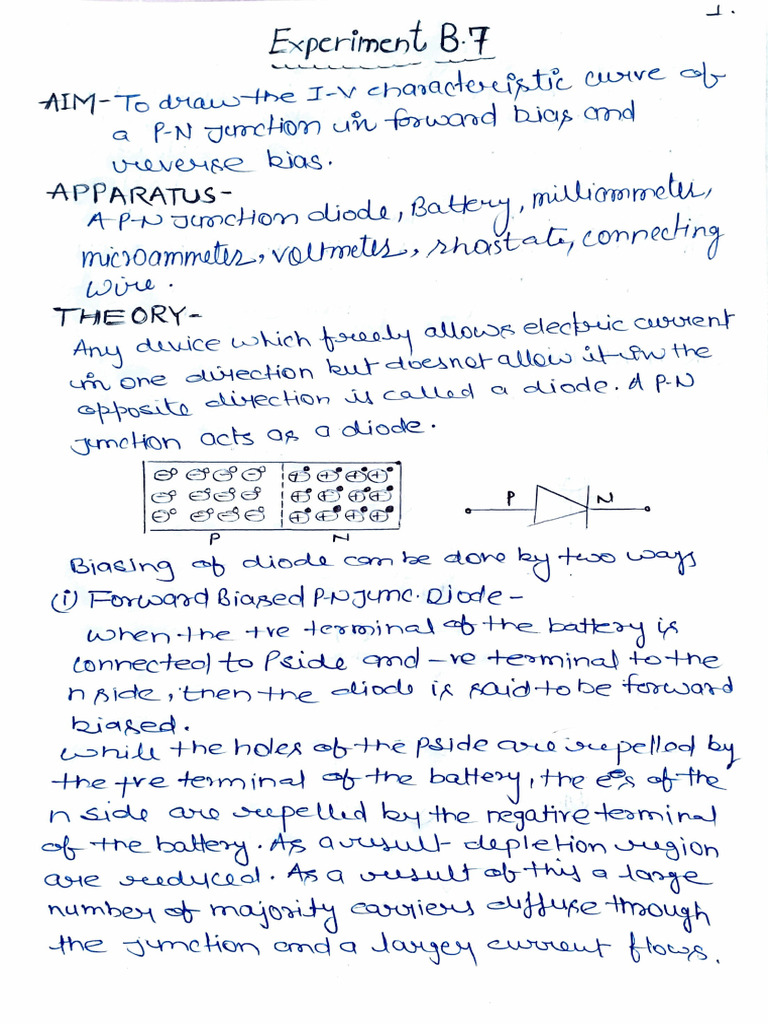 1.
Experiment B.7
AIM- To draw the I-V characteristic curve of
a P-N junction in forward bias and
reverse bias.
APPARATUS-
A P-N junction diode, Battery, milliammeter,
microammeter, voltmeter, rhastate, connecting
wire.
THEORY-
Any device which freely allows electric current
in one direction but doesnot allow it in the
opposite direction is called a diode. A P-N
junction acts as a diode.
P N
P N
Biasing of diode can be done by two ways
(i) Forward Biased P-N junc. Diode-
When the +ve terminal of the battery is
connected to P side and -ve terminal to the
n side, then the diode is said to be forward
biased.
While the holes of the pside are repelled by
the +ve terminal of the battery, the e⁻s of the
n side are repelled by the negative terminal
of the battery. As a result depletion region
are reduced. As a result of this a large
number of majority carriers diffuse through
the junction and a largey current flows.